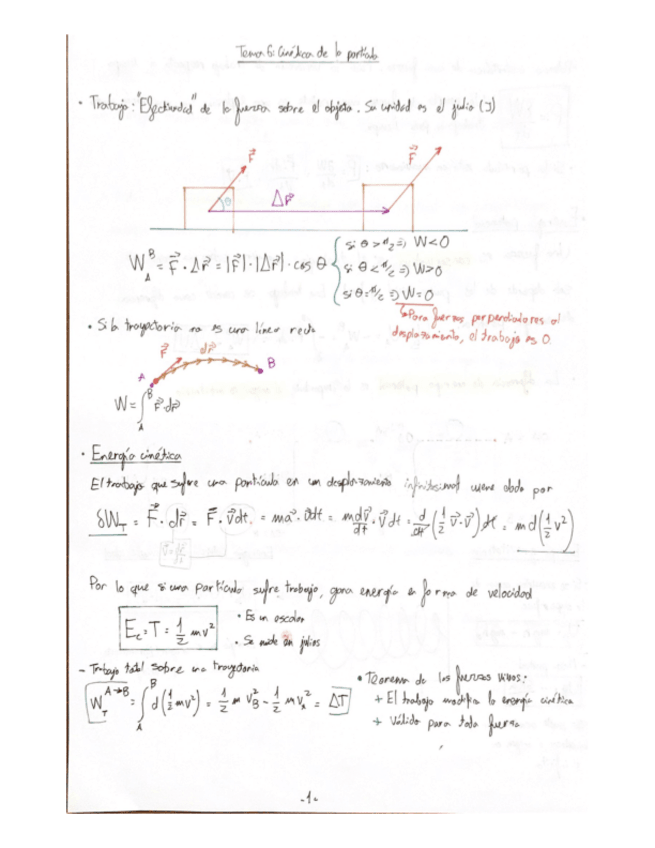 Tema 6: Cinética de la partícula
• Trabajo: "Efectividad" de la fuerza sobre el objeto. Su unidad es el julio (J)
F⃗ F⃗
θ Δr⃗
W_A^B = F⃗ · Δr⃗ = |F⃗|·|Δr⃗|·cos θ { si θ > π/2 ⇒ W<0
si θ < π/2 ⇒ W>0
si θ = π/2 ⇒ W=0
↳ Para fuerzas perpendiculares al
desplazamiento, el trabajo es 0.
• Si la trayectoria no es una línea recta
F⃗ dr⃗
A B
W = ∫_A^B F⃗·dr⃗
• Energía cinética
El trabajo que sufre una partícula en un desplazamiento infinitesimal viene dado por
δW_T = F⃗ · dr⃗ = F⃗ · v⃗dt = ma⃗ · v⃗dt = m dv⃗/dt · v⃗ dt = d/dt (1/2 v⃗·v⃗) dt = m d(1/2 v²)
Por lo que si una partícula sufre trabajo, gana energía en forma de velocidad
E_c = T = 1/2 mv²
• Es un escalar
• Se mide en julios
- Trabajo total sobre una trayectoria
W_T^{A→B} = ∫_A^B d(1/2 mv²) = 1/2 m v_B² - 1/2 m v_A² = ΔT
• Teorema de las fuerzas vivas:
+ El trabajo modifica la energía cinética
+ Válido para toda fuerza
-1-